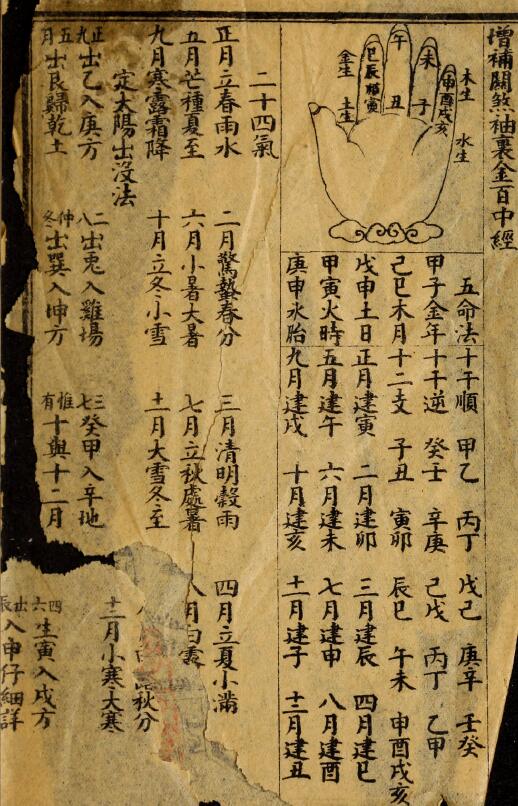 增補關煞袖裏金百中經
木生
水生
金生
土生
申酉戌亥
未子
午丑
巳辰卯寅
五命法 十干順 甲乙 丙丁 戊己 庚辛 壬癸
甲子金年 十干逆 癸壬 辛庚 己戊 丙丁 乙甲
己巳木月 十二支 子丑 寅卯 辰巳 午未 申酉戌亥
戊申土日 正月建寅 二月建卯 三月建辰 四月建巳
甲寅火時 五月建午 六月建未 七月建申 八月建酉
庚申水胎 九月建戌 十月建亥 十一月建子 十二月建丑
二十四氣
正月立春雨水 二月驚蟄春分 三月清明穀雨 四月立夏小滿
五月芒種夏至 六月小暑大暑 七月立秋處暑 八月白露 秋分
九月寒露霜降 十月立冬小雪 十一月大雪冬至 十二月小寒大寒
定太陽出沒法
正九出乙入庚方 二八出兎入雞場 三七癸甲入辛地 四六生寅入戌方
五月出艮歸乾土 仲冬出巽入坤方 惟有十與十二月 出辰入申仔細詳